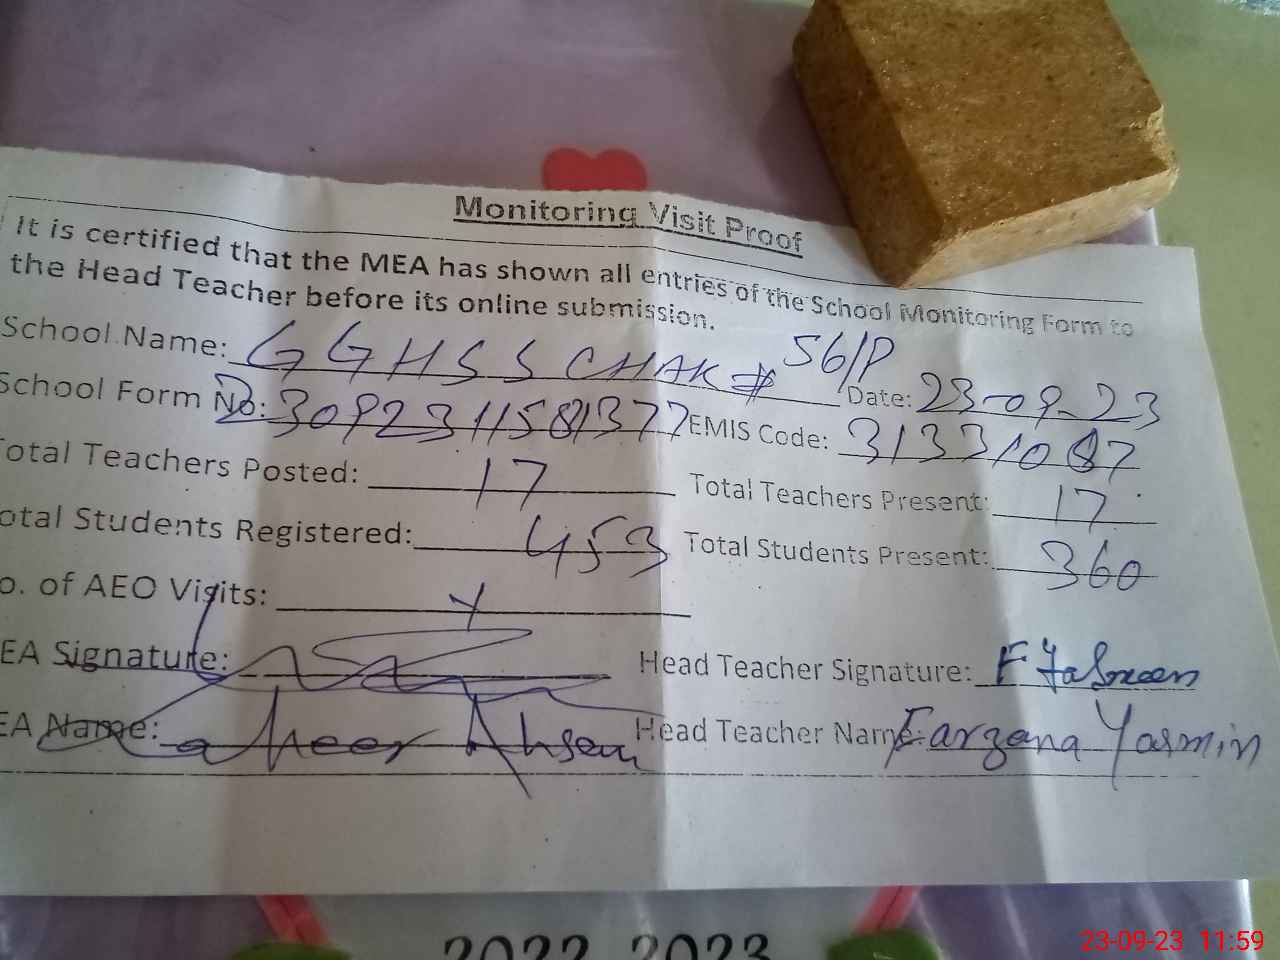 Monitoring Visit Proof
It is certified that the MEA has shown all entries of the School Monitoring Form to
the Head Teacher before its online submission.
School Name: GGHSS CHAK # 56/P Date: 23-09-23
School Form No: EMIS Code: 31331087
Total Teachers Posted: 17 Total Teachers Present: 17
otal Students Registered: 453 Total Students Present: 360
o. of AEO Visits:
EA Signature: Head Teacher Signature: F Yasmeen
EA Name: Ahsan Head Teacher Name: Farzana Yasmin
2022 2023
23-09-23 11:59